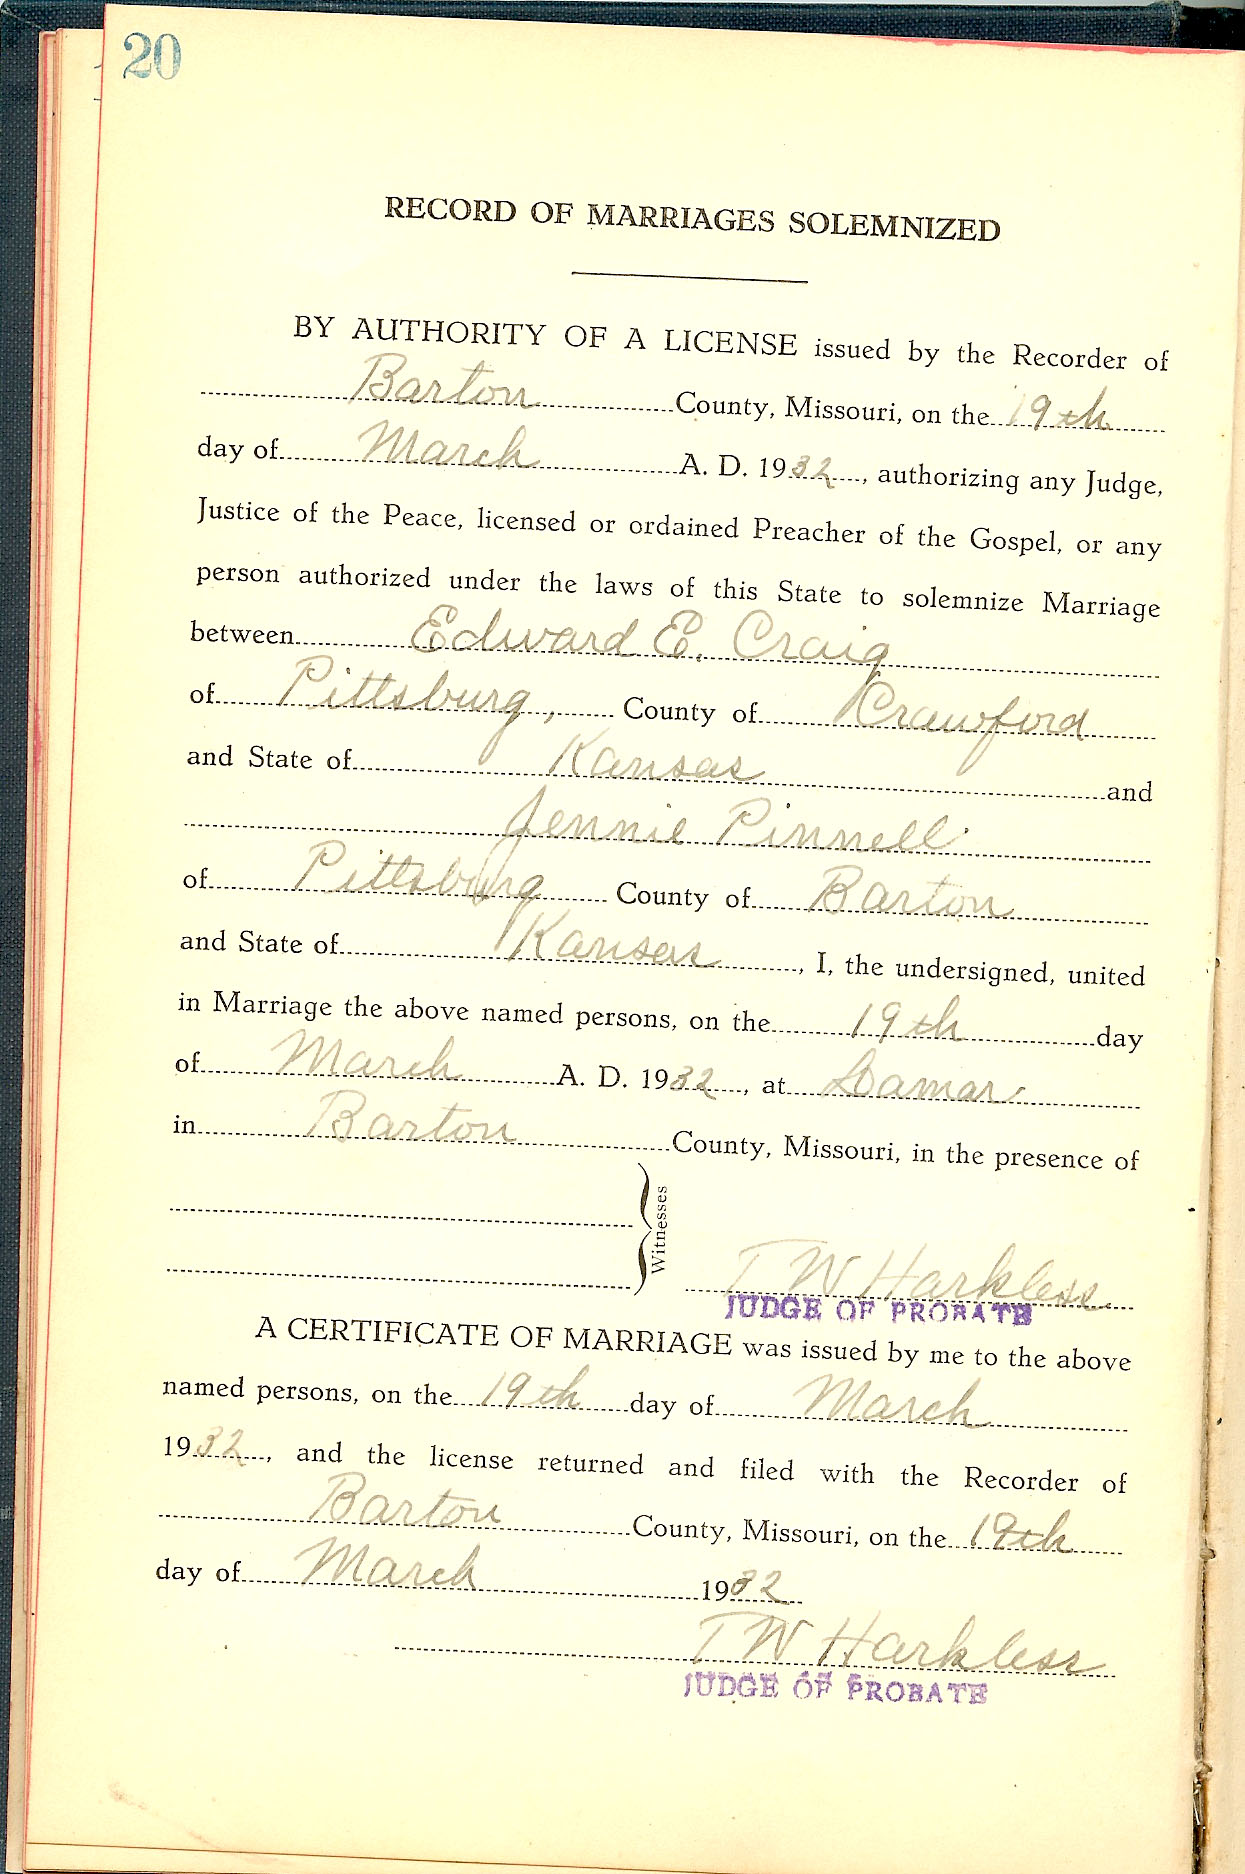 20
RECORD OF MARRIAGES SOLEMNIZED
BY AUTHORITY OF A LICENSE issued by the Recorder of
Barton County, Missouri, on the 19th
day of March A. D. 1932, authorizing any Judge,
Justice of the Peace, licensed or ordained Preacher of the Gospel, or any
person authorized under the laws of this State to solemnize Marriage
between Edward E. Craig
of Pittsburg, County of Crawford
and State of Kansas and
Jennie Pinnell
of Pittsburg County of Barton
and State of Kansas, I, the undersigned, united
in Marriage the above named persons, on the 19th day
of March A. D. 1932, at Lamar
in Barton County, Missouri, in the presence of
Witnesses
T W Harkless
JUDGE OF PROBATE
A CERTIFICATE OF MARRIAGE was issued by me to the above
named persons, on the 19th day of March
1932, and the license returned and filed with the Recorder of
Barton County, Missouri, on the 19th
day of March 1932
T W Harkless
JUDGE OF PROBATE